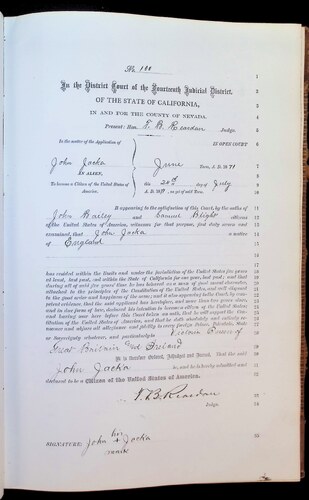 No. 100
In the District Court of the Fourteenth Judicial District,
OF THE STATE OF CALIFORNIA,
IN AND FOR THE COUNTY OF NEVADA.
Present: Hon T. B. Reardan Judge.
In the matter of the Application of
IN OPEN COURT
John Jacka
June Term, A. D. 1871
AN ALIEN,
To become a Citizen of the United States of America.
this 20th day of July
A. D. 1871
It appearing to the satisfaction of this Court, by the oaths of
John Bailey and Samuel Blight citizens
of the United States of America, witnesses for that purpose, first duly sworn and
examined, that John Jacka a native
of England
has resided within the limits and under the jurisdiction of the United States five years
at least, last past, and within the State of California for one year, last past; and that
during all of said five years' time he has behaved as a man of good moral character,
attached to the principles of the Constitution of the United States, and well disposed
to the good order and happiness of the same; and it also appearing to the Court, by competent evidence, that the said applicant has heretofore, and more than two years since,
and in due form of law, declared his intention to become a citizen of the United States
and having now here before this Court taken an oath, that he will support the Constitution of the United States of America, and that he doth absolutely and entirely renounce and abjure all allegiance and fidelity to every foreign Prince, Potentate, State
or Sovereignty whatever, and particularly to Victoria Queen of
Great Britain and Ireland
It is therefore Ordered, Adjudged and Decreed, That the said
John Jacka be, and he is hereby admitted and
declared to be a Citizen of the United States of America.
T. B. Reardan
Judge.
SIGNATURE: John his + mark Jacka
1
2
3
4
5
6
7
8
9
10
11
12
13
14
15